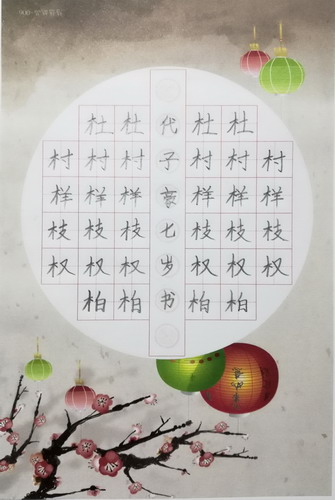 杜杜代杜杜
村村村子村村村
样样样豪样样样
枝枝枝七枝枝枝
权权权岁权权权
柏柏书柏柏